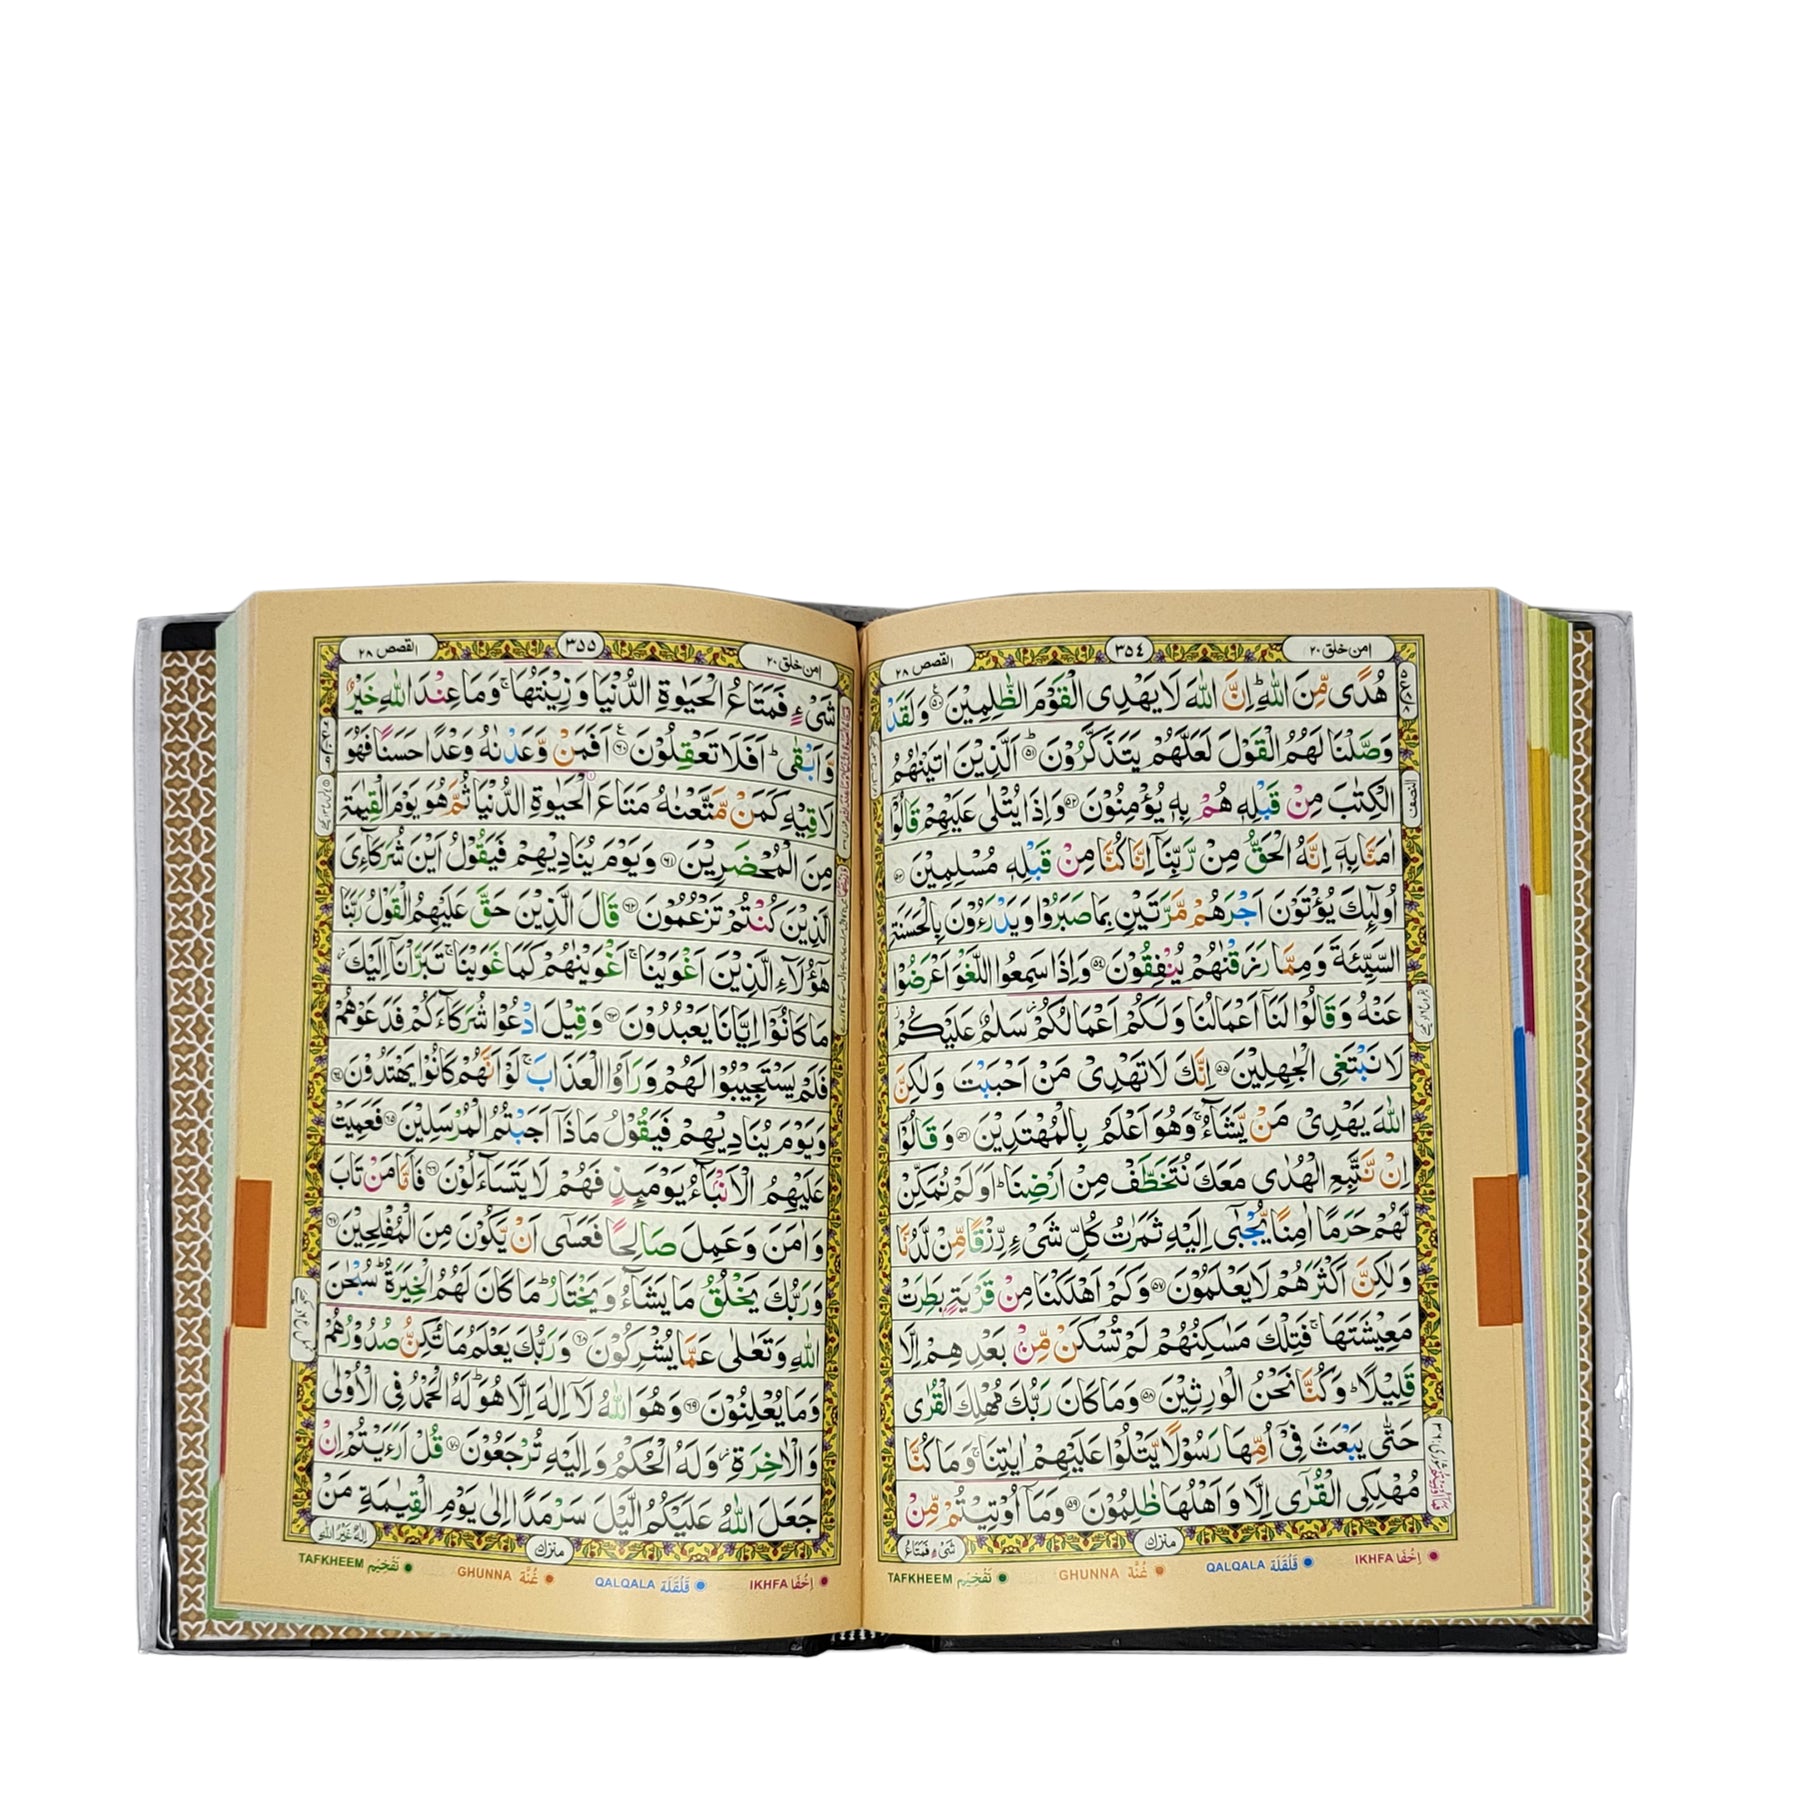 امن خلق ٢٠
٣٥٤
القصص ٢٨
هُدًى مِّنَ اللّٰهِ ؕ اِنَّ اللّٰهَ لَا يَهْدِى الْقَوْمَ الظّٰلِمِيْنَ ۟ ٥٠ وَلَقَدْ
وَصَّلْنَا لَهُمُ الْقَوْلَ لَعَلَّهُمْ يَتَذَكَّرُوْنَ ؕ ٥١ اَلَّذِيْنَ اٰتَيْنٰهُمُ
الْكِتٰبَ مِنْ قَبْلِهٖ هُمْ بِهٖ يُؤْمِنُوْنَ ٥٢ وَاِذَا يُتْلٰى عَلَيْهِمْ قَالُوْٓا
اٰمَنَّا بِهٖٓ اِنَّهُ الْحَقُّ مِنْ رَّبِّنَآ اِنَّا كُنَّا مِنْ قَبْلِهٖ مُسْلِمِيْنَ ٥٣
اُولٰٓئِكَ يُؤْتَوْنَ اَجْرَهُمْ مَّرَّتَيْنِ بِمَا صَبَرُوْا وَيَدْرَءُوْنَ بِالْحَسَنَةِ
السَّيِّئَةَ وَمِمَّا رَزَقْنٰهُمْ يُنْفِقُوْنَ ٥٤ وَاِذَا سَمِعُوا اللَّغْوَ اَعْرَضُوْا
عَنْهُ وَقَالُوْا لَنَآ اَعْمَالُنَا وَلَكُمْ اَعْمَالُكُمْ ؗ سَلٰمٌ عَلَيْكُمْ ؗ
لَا نَبْتَغِى الْجٰهِلِيْنَ ٥٥ اِنَّكَ لَا تَهْدِىْ مَنْ اَحْبَبْتَ وَلٰكِنَّ
اللّٰهَ يَهْدِىْ مَنْ يَّشَآءُ ۚ وَهُوَ اَعْلَمُ بِالْمُهْتَدِيْنَ ٥٦ وَقَالُوْٓا
اِنْ نَّتَّبِعِ الْهُدٰى مَعَكَ نُتَخَطَّفْ مِنْ اَرْضِنَا ؕ اَوَلَمْ نُمَكِّنْ
لَّهُمْ حَرَمًا اٰمِنًا يُّجْبٰٓى اِلَيْهِ ثَمَرٰتُ كُلِّ شَىْءٍ رِّزْقًا مِّنْ لَّدُنَّا
وَلٰكِنَّ اَكْثَرَهُمْ لَا يَعْلَمُوْنَ ٥٧ وَكَمْ اَهْلَكْنَا مِنْ قَرْيَةٍۭ بَطِرَتْ
مَعِيْشَتَهَا ۚ فَتِلْكَ مَسٰكِنُهُمْ لَمْ تُسْكَنْ مِّنْۢ بَعْدِهِمْ اِلَّا
قَلِيْلًا ؕ وَكُنَّا نَحْنُ الْوٰرِثِيْنَ ٥٨ وَمَا كَانَ رَبُّكَ مُهْلِكَ الْقُرٰى
حَتّٰى يَبْعَثَ فِىْٓ اُمِّهَا رَسُوْلًا يَّتْلُوْا عَلَيْهِمْ اٰيٰتِنَا ۚ وَمَا كُنَّا
مُهْلِكِى الْقُرٰٓى اِلَّا وَاَهْلُهَا ظٰلِمُوْنَ ٥٩ وَمَآ اُوْتِيْتُمْ مِّنْ
منزل
شَىْءٍ فَمَتَاعُ
IKHFA اِخْفَا
QALQALA قَلْقَلَة
GHUNNA غُنَّة
TAFKHEEM تَفْخِيْم
النصف
امن خلق ٢٠
٣٥٥
القصص ٢٨
شَىْءٍ فَمَتَاعُ الْحَيٰوةِ الدُّنْيَا وَزِيْنَتُهَا ۚ وَمَا عِنْدَ اللّٰهِ خَيْرٌ
وَّاَبْقٰى ؕ اَفَلَا تَعْقِلُوْنَ ٦٠ اَفَمَنْ وَّعَدْنٰهُ وَعْدًا حَسَنًا فَهُوَ
لَاقِيْهِ كَمَنْ مَّتَّعْنٰهُ مَتَاعَ الْحَيٰوةِ الدُّنْيَا ثُمَّ هُوَ يَوْمَ الْقِيٰمَةِ
مِنَ الْمُحْضَرِيْنَ ٦١ وَيَوْمَ يُنَادِيْهِمْ فَيَقُوْلُ اَيْنَ شُرَكَآءِىَ
الَّذِيْنَ كُنْتُمْ تَزْعُمُوْنَ ٦٢ قَالَ الَّذِيْنَ حَقَّ عَلَيْهِمُ الْقَوْلُ رَبَّنَا
هٰٓؤُلَآءِ الَّذِيْنَ اَغْوَيْنَا ۚ اَغْوَيْنٰهُمْ كَمَا غَوَيْنَا ۚ تَبَرَّاْنَآ اِلَيْكَ ؗ
مَا كَانُوْٓا اِيَّانَا يَعْبُدُوْنَ ٦٣ وَقِيْلَ ادْعُوْا شُرَكَآءَكُمْ فَدَعَوْهُمْ
فَلَمْ يَسْتَجِيْبُوْا لَهُمْ وَرَاَوُا الْعَذَابَ ۚ لَوْ اَنَّهُمْ كَانُوْا يَهْتَدُوْنَ ٦٤
وَيَوْمَ يُنَادِيْهِمْ فَيَقُوْلُ مَاذَآ اَجَبْتُمُ الْمُرْسَلِيْنَ ٦٥ فَعَمِيَتْ
عَلَيْهِمُ الْاَنْۢبَآءُ يَوْمَئِذٍ فَهُمْ لَا يَتَسَآءَلُوْنَ ٦٦ فَاَمَّا مَنْ تَابَ
وَاٰمَنَ وَعَمِلَ صَالِحًا فَعَسٰٓى اَنْ يَّكُوْنَ مِنَ الْمُفْلِحِيْنَ ٦٧
وَرَبُّكَ يَخْلُقُ مَا يَشَآءُ وَيَخْتَارُ ؕ مَا كَانَ لَهُمُ الْخِيَرَةُ ؕ سُبْحٰنَ
اللّٰهِ وَتَعٰلٰى عَمَّا يُشْرِكُوْنَ ٦٨ وَرَبُّكَ يَعْلَمُ مَا تُكِنُّ صُدُوْرُهُمْ
وَمَا يُعْلِنُوْنَ ٦٩ وَهُوَ اللّٰهُ لَآ اِلٰهَ اِلَّا هُوَ ؕ لَهُ الْحَمْدُ فِى الْاُوْلٰى
وَالْاٰخِرَةِ ؗ وَلَهُ الْحُكْمُ وَاِلَيْهِ تُرْجَعُوْنَ ٧٠ قُلْ اَرَءَيْتُمْ اِنْ
جَعَلَ اللّٰهُ عَلَيْكُمُ الَّيْلَ سَرْمَدًا اِلٰى يَوْمِ الْقِيٰمَةِ مَنْ
منزل
اِلٰهٌ غَيْرُ اللّٰهِ
IKHFA اِخْفَا
QALQALA قَلْقَلَة
GHUNNA غُنَّة
TAFKHEEM تَفْخِيْم